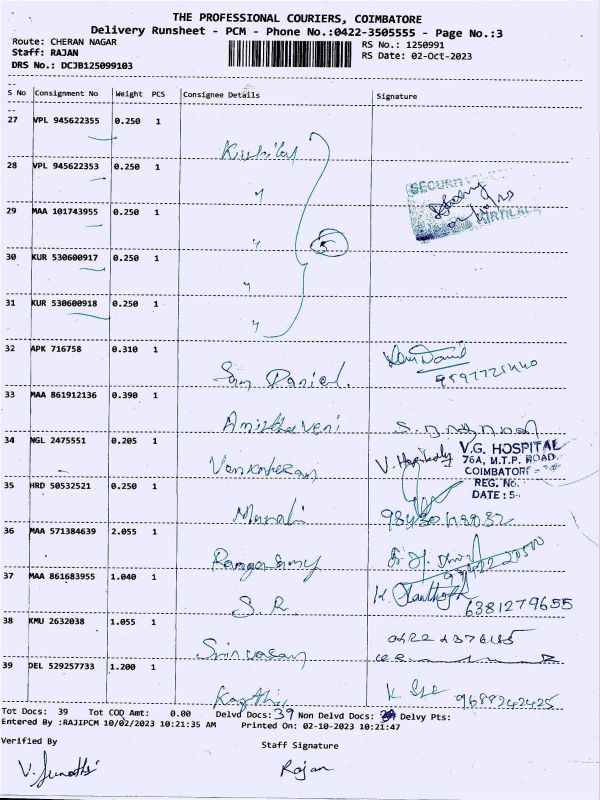 THE PROFESSIONAL COURIERS, COIMBATORE
Delivery Runsheet - PCM - Phone No.:0422-3505555 - Page No.:3
Route: CHERAN NAGAR RS No.: 1250991
Staff: RAJAN RS Date: 02-Oct-2023
DRS No.: DCJB125099103
S No Consignment No Weight PCS Consignee Details Signature
27 VPL 945622355 0.250 1
28 VPL 945622353 0.250 1
"
SECURIT
29 MAA 101743955 0.250 1
"
5
30 KUR 530600917 0.250 1
"
31 KUR 530600918 0.250 1
"
32 APK 716758 0.310 1
Sam Daniel.
33 MAA 861912136 0.390 1
Amirthaveni
34 NGL 2475551 0.205 1
V.G. HOSPITAL
76A, M.T.P. ROAD
COIMBATORE
REG. No.
DATE : 5
35 HRD 50532521 0.250 1
Murali
36 MAA 571384639 2.055 1
Rangasamy
37 MAA 861683955 1.040 1
S.R. K. 6381279655
38 KMU 2632038 1.055 1
Srinivasan
39 DEL 529257733 1.200 1
Karthi K 9689242425
Tot Docs: 39 Tot COD Amt: 0.00 Delvd Docs: 39 Non Delvd Docs: Delvy Pts:
Entered By :RAJIPCM 10/02/2023 10:21:35 AM Printed On: 02-10-2023 10:21:47
Verified By Staff Signature
Rajan